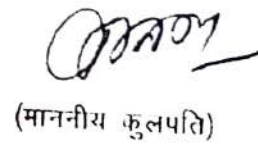 (माननीय कुलपति)